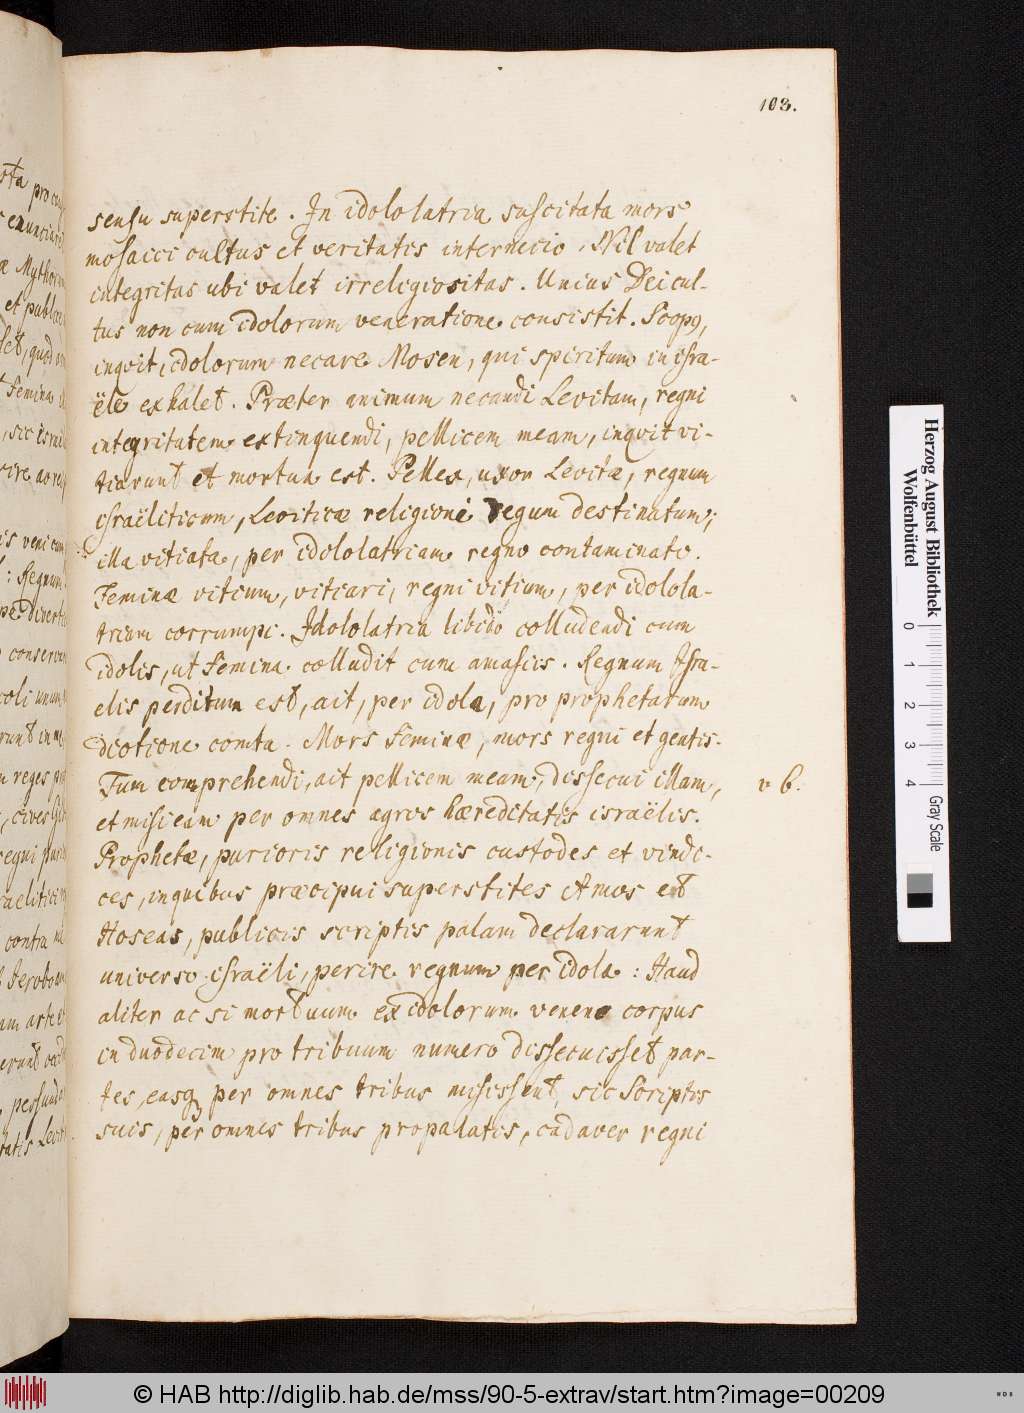 103.
sensu superstite. In idololatria suscitata mors
mosaici cultus et veritatis internecio. Nil valet
integritas ubi valet irreligiositas. Unius Dei cul-
tus non cum idolorum veneratione consistit. Scopꝯ,
inqvit, idolorum necare Mosen, qui spiritum in isra-
ële exhalet. Præter animum necandi Levitam, regni
integritatem extinguendi, pellicem meam, inqvit vi-
tiarunt et mortua est. Pellex, uxor Levitæ, regnum
israëliticum, Leviticæ religioni regum destinatum;
illa vitiata, per idololatriam regno contaminato.
Feminæ vitium, vitiari, regni vitium, per idolola-
triam corrumpi. Idololatria libido colludendi cum
idolis, ut femina colludit cum amasiis. Regnum Isra-
elis perditum est, ait, per idola, pro prophetarum
dictione comta. Mors feminæ, mors regni et gentis.
Tum comprehendi, ait pellicem meam, dissecui illam,
v 6.
et misi eam per omnes agros hæreditatis israëlis.
Prophetæ, purioris religionis custodes et vindi-
ces, in quibus præcipui superstites Amos et
Hoseas, publicis scriptis palam declararunt
universo israëli, perire regnum per idola: Haud
aliter ac si mortuum ex idolorum veneno corpus
in duodecim pro tribuum numero dissecuisset par-
tes, easqꝫ per omnes tribus misissent, sic Scriptis
suis, per omnes tribus propalatis, cadaver regni
Herzog August Bibliothek
Wolfenbüttel
0 1 2 3 4
Gray Scale
© HAB http://diglib.hab.de/mss/90-5-extrav/start.htm?image=00209